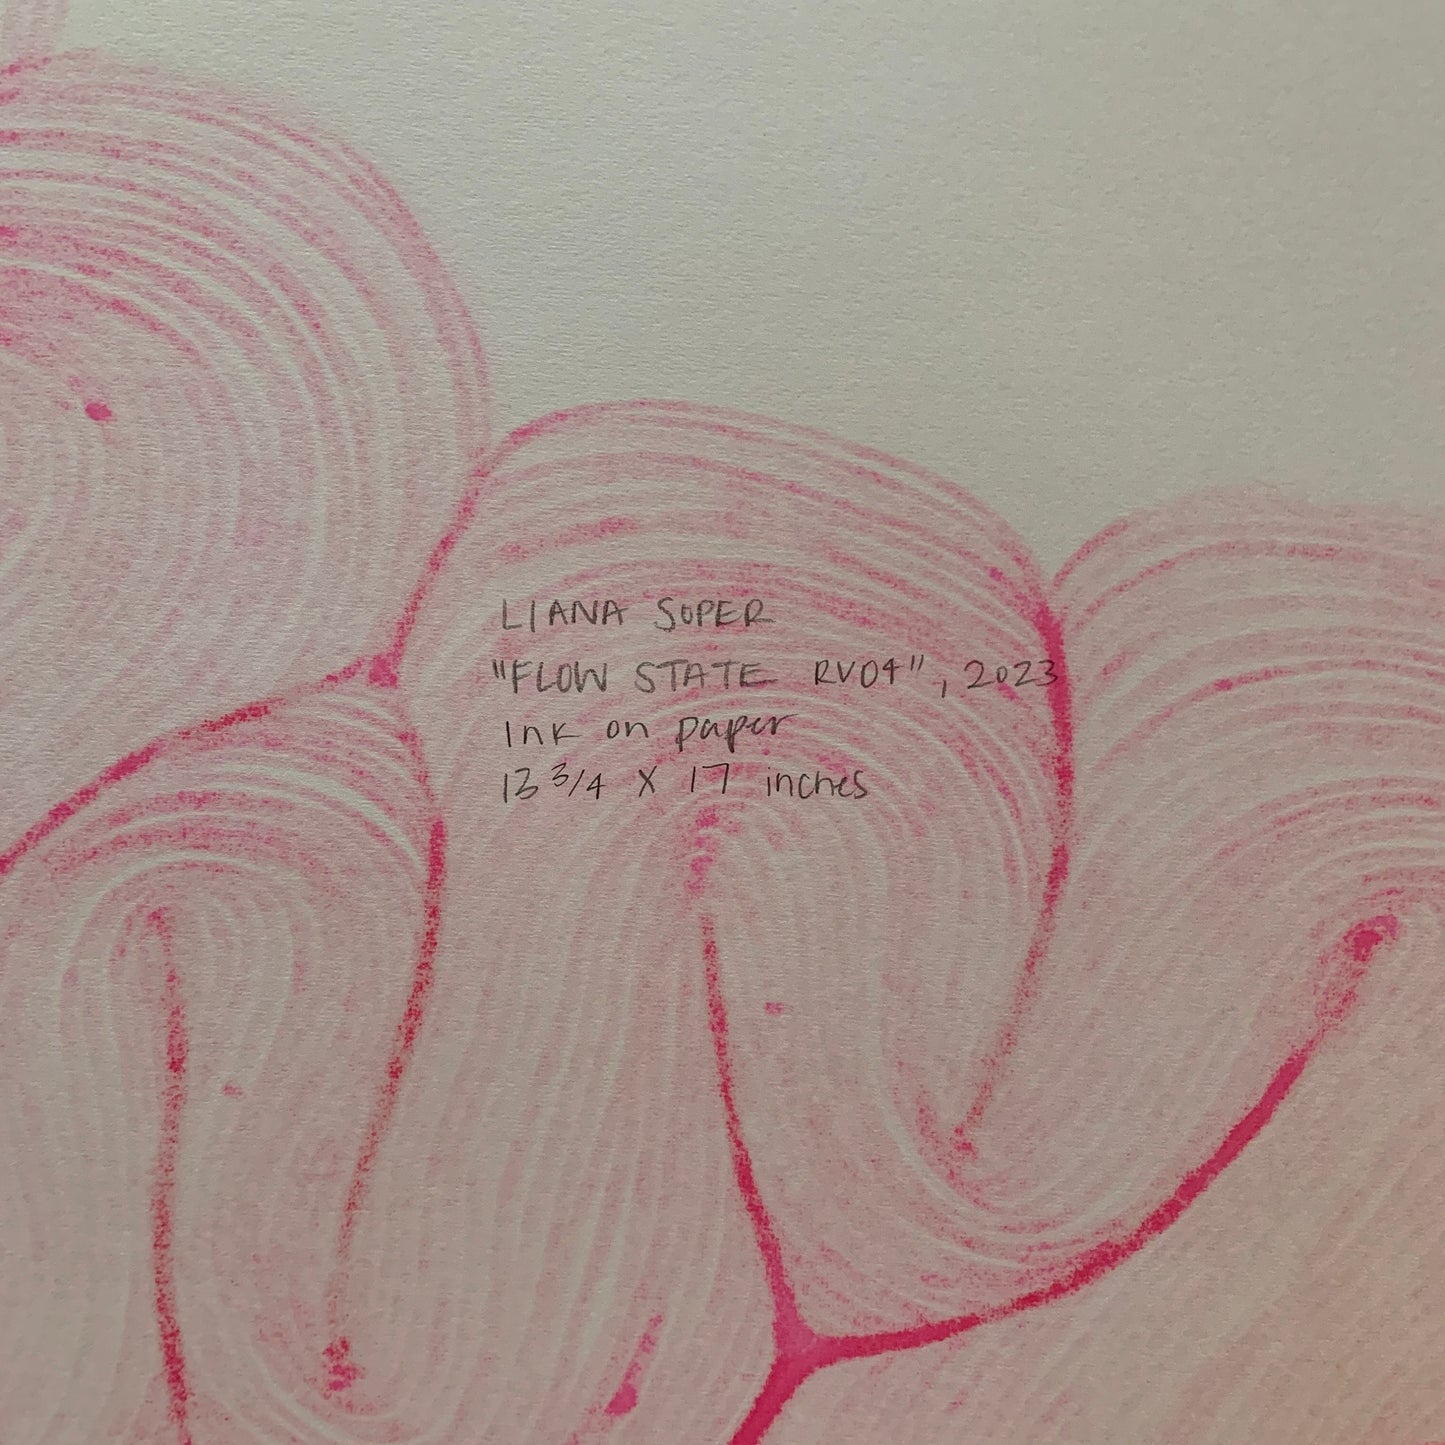 LIANA SOPER
"FLOW STATE RV04", 2023
Ink on paper
13 3/4 X 17 inches